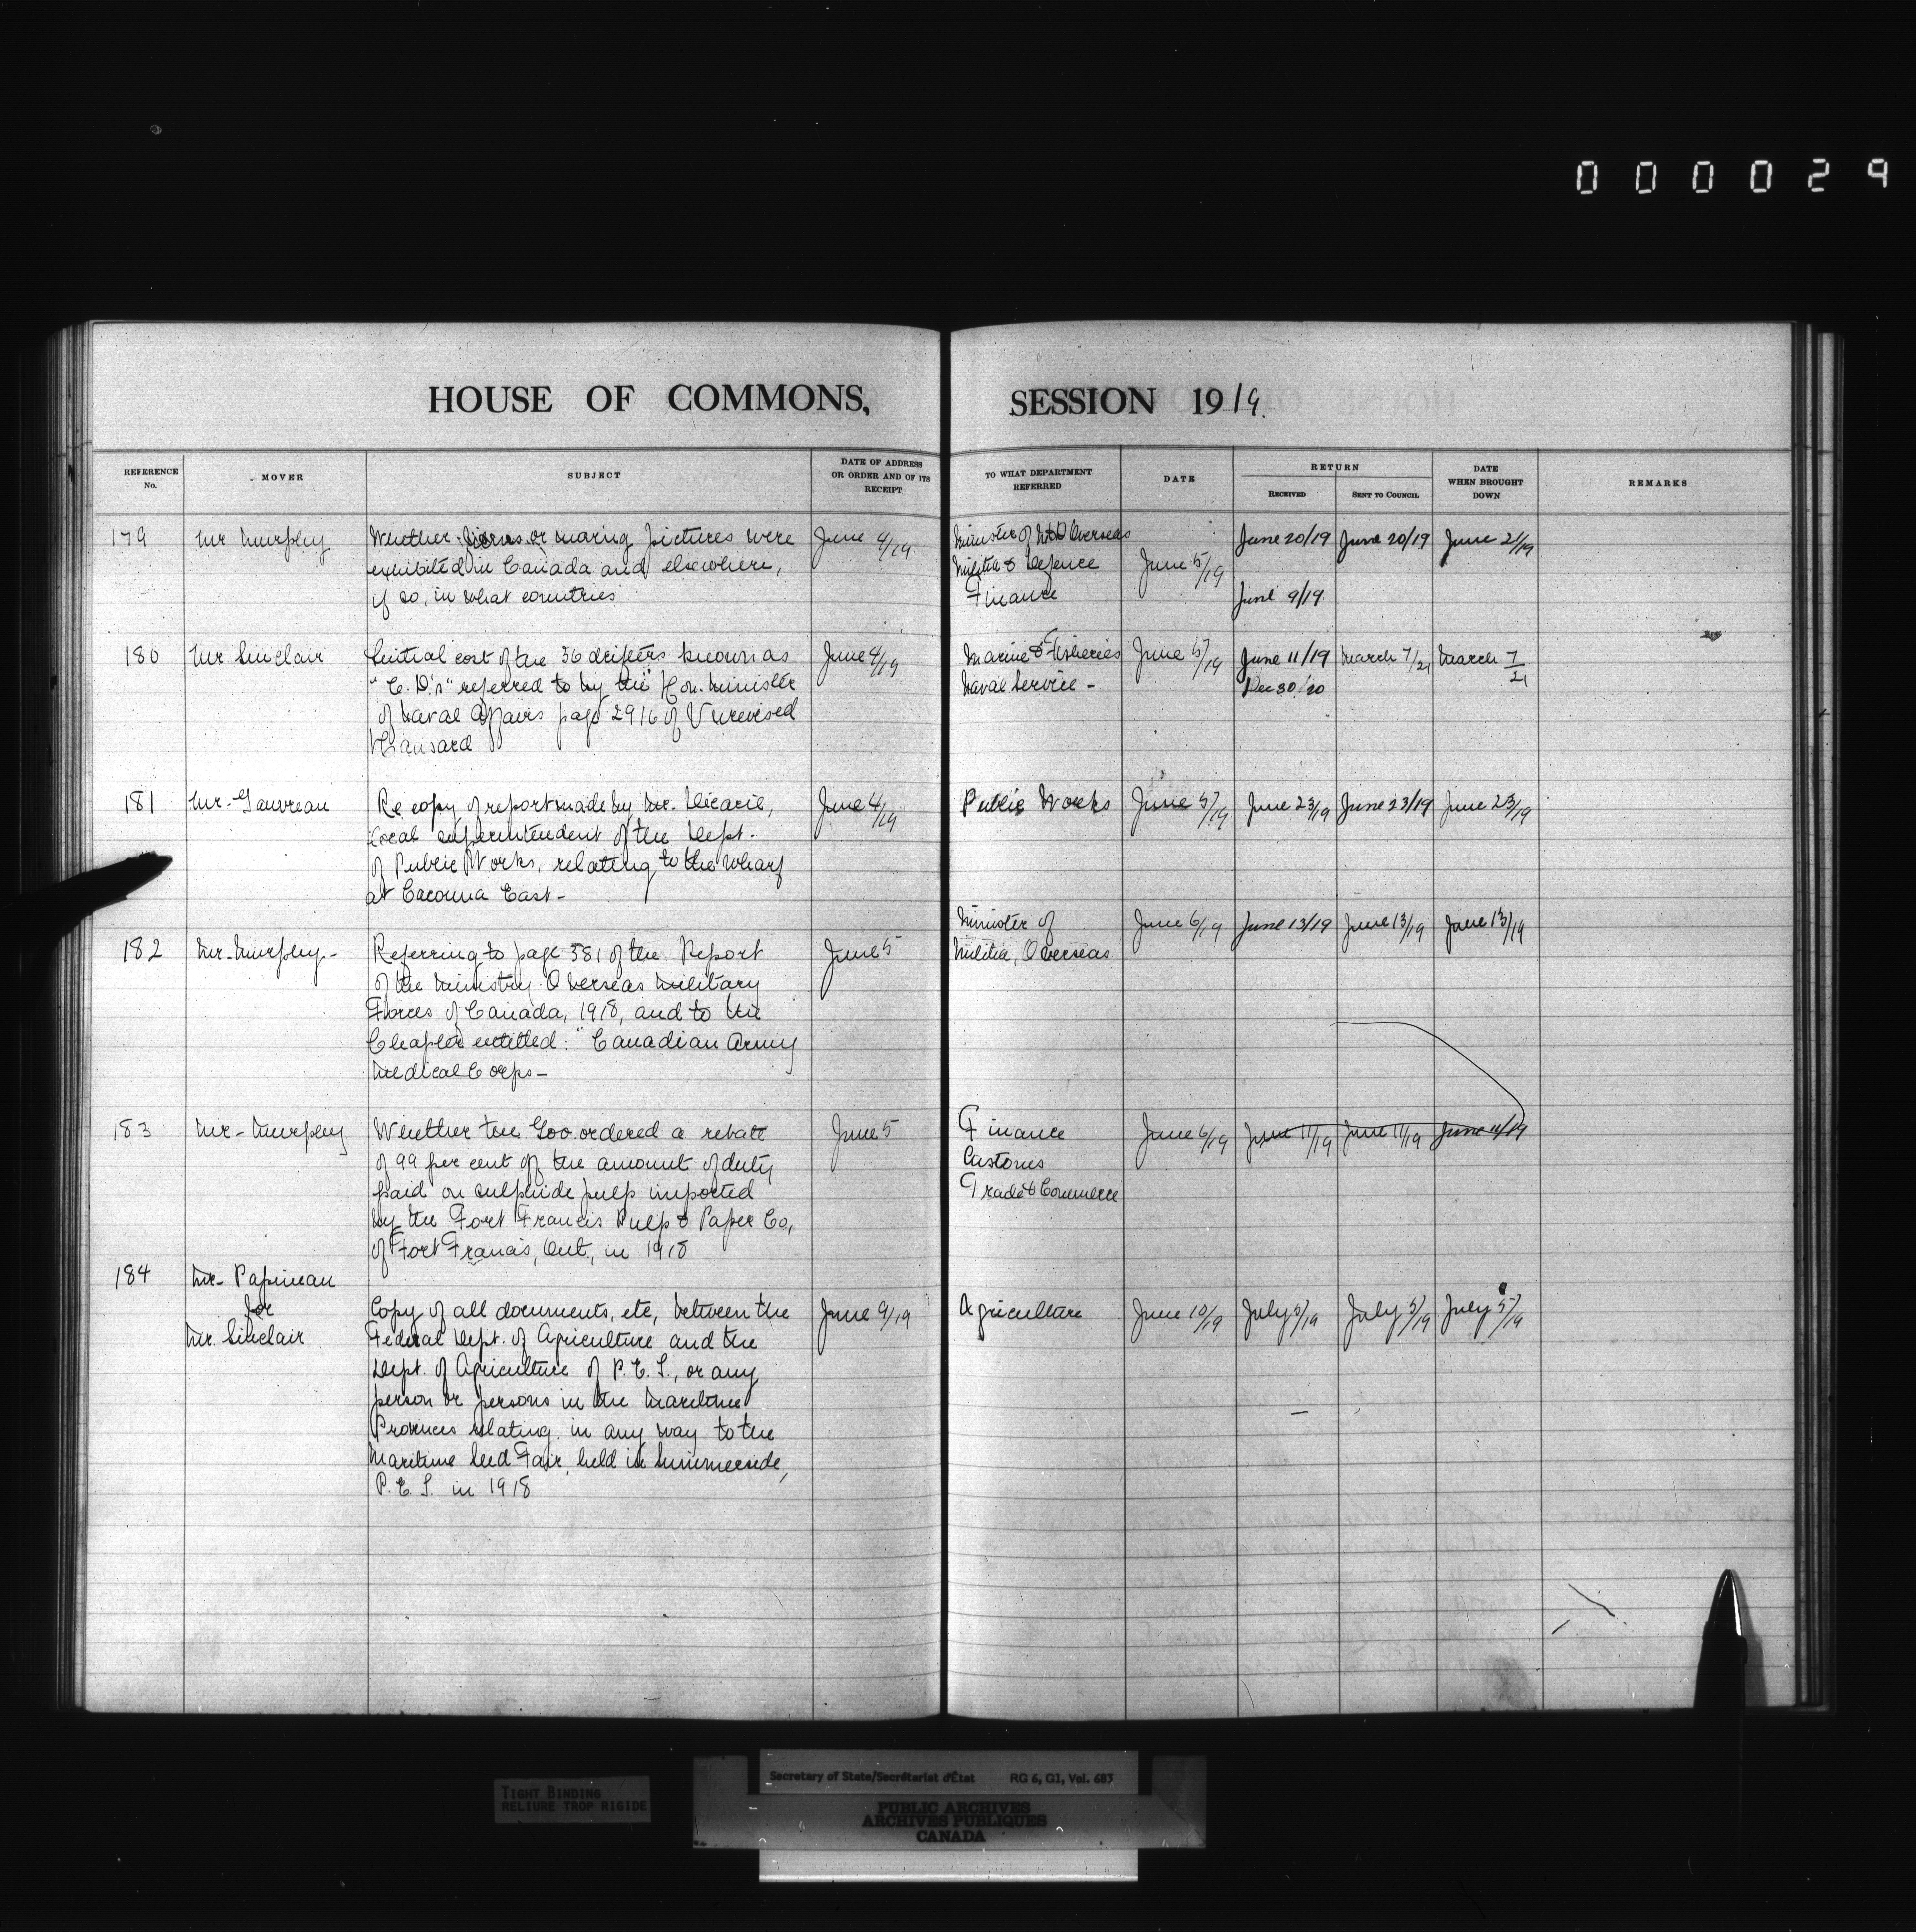 000029
HOUSE OF COMMONS, SESSION 1919.
REFERENCE No. MOVER SUBJECT DATE OF ADDRESS OR ORDER AND OF ITS RECEIPT TO WHAT DEPARTMENT REFERRED DATE RETURN RECEIVED SENT TO COUNCIL DATE WHEN BROUGHT DOWN REMARKS
179 Mr Murphy Whether views or moving pictures were June 4/19 Minister of M&D Overseas June 20/19 June 20/19 June 21/19
exhibited in Canada and elsewhere, Militia & Defence June 5/19
if so, in what countries Finance June 9/19
180 Mr Sinclair Initial cost of the 36 drifters known as June 4/19 Marine & Fisheries June 5/19 June 11/19 March 7/21 March 7/21
"C. D.'s" referred to by the Hon. Minister Naval Service - Dec 30/20
of Naval Affairs page 2916 of Unrevised
Hansard
181 Mr. Gauvreau Re copy of report made by Mr. June 4/19 Public Works June 5/19 June 23/19 June 23/19 June 23/19
local superintendent of the Dept.
of Public Works, relating to the wharf
at Cacouna East-
Minister of June 6/19 June 13/19 June 13/19 June 13/19
182 Mr. Murphy- Referring to page 381 of the Report June 5 Militia, Overseas
of the Ministry Overseas Military
Forces of Canada, 1918, and to the
Chapter entitled: "Canadian Army
Medical Corps-
183 Mr- Murphy Whether the Gov. ordered a rebate June 5 Finance June 6/19 June 11/19 June 11/19 June 11/19
of 99 per cent of the amount of duty Customs
paid on sulphide pulp imported Trade & Commerce
by the Fort Francis Pulp & Paper Co,
of Fort Francis, Ont., in 1918
184 Mr- Papineau
for Copy of all documents, etc, between the June 9/19 Agriculture June 10/19 July 5/19 July 5/19 July 5/19
Mr. Sinclair Federal Dept. of Agriculture and the
Dept. of Agriculture of P. E. I., or any
person or persons in the Maritime
Provinces relating in any way to the
Maritime Seed Fair, held in Summerside,
P. E. I. in 1918
TIGHT BINDING
RELIURE TROP RIGIDE
Secretary of State/Secrétariat d'État RG 6, G1, Vol. 683
PUBLIC ARCHIVES
ARCHIVES PUBLIQUES
CANADA